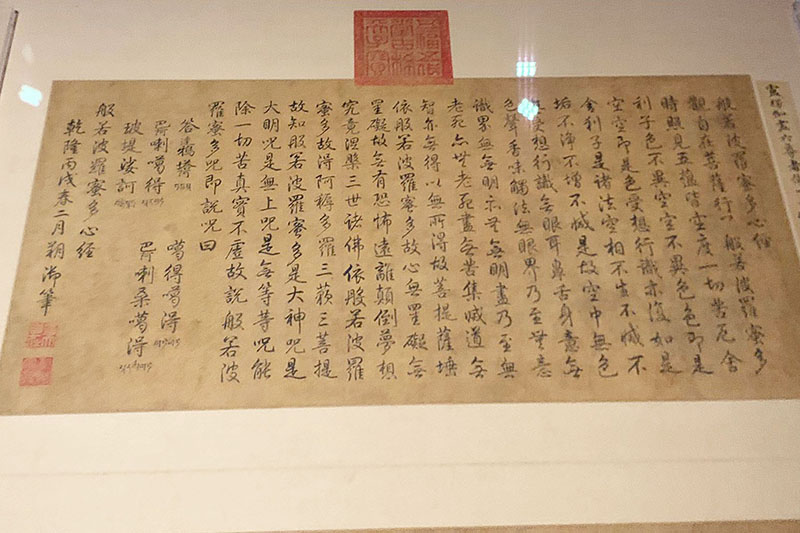 五福五代堂古稀天子寶
般若波羅蜜多心經
觀自在菩薩行深般若波羅蜜多
時照見五蘊皆空度一切苦厄舍
利子色不異空空不異色色即是
空空即是色受想行識亦復如是
舍利子是諸法空相不生不滅不
垢不淨不增不減是故空中無色
無受想行識無眼耳鼻舌身意無
色聲香味觸法無眼界乃至無意
識界無無明亦無無明盡乃至無
老死亦無老死盡無苦集滅道無
智亦無得以無所得故菩提薩埵
依般若波羅蜜多故心無罣礙無
罣礙故無有恐怖遠離顛倒夢想
究竟涅槃三世諸佛依般若波羅
蜜多故得阿耨多羅三藐三菩提
故知般若波羅蜜多是大神咒是
大明咒是無上咒是無等等咒能
除一切苦真實不虛故說般若波
羅蜜多咒即說咒曰
答
噶得噶得
喇噶得
喇桑噶得
玻提娑訶
般若波羅蜜多心經
乾隆丙戌春二月朔御筆